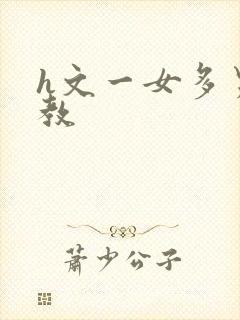 h文一女多
教
萧少公子